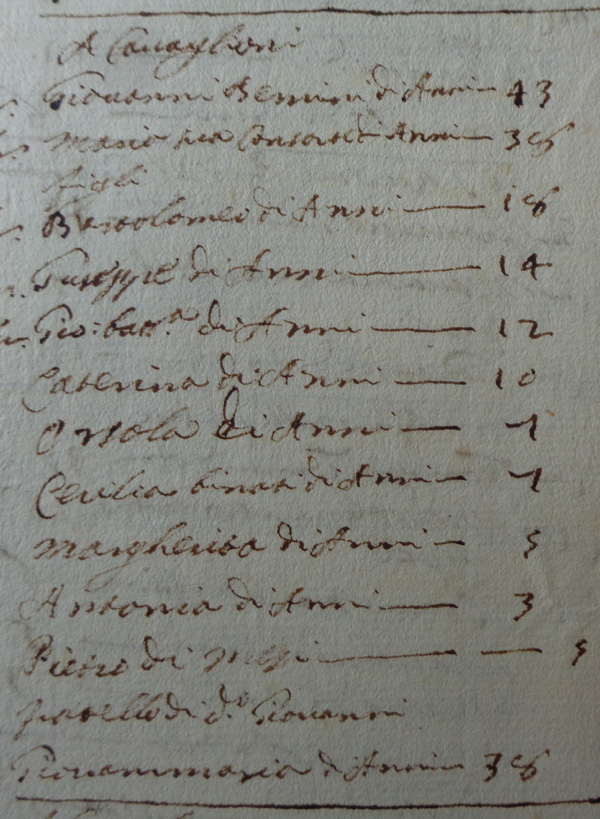 A Cavaglioni
Giovanni Bernini di Anni 43
Maria sua Consorte di Anni 38
figli
Bartolomeo di Anni 18
Giuseppe di Anni 14
Gio: batt.a di Anni 12
Caterina di Anni 10
Orsola di Anni 7
Cecilia binati di Anni 7
Margherita di Anni 5
Antonia di Anni 3
Pietro di Mesi 5
fratello di d.o Giovanni
Giovanmaria di Anni 38